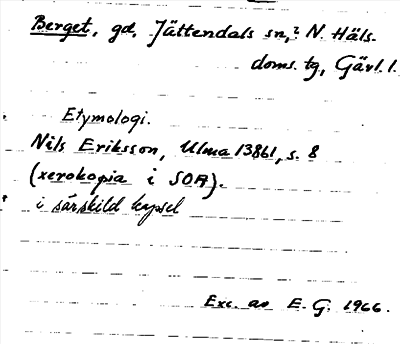 Berget, gd, Jättendals sn, N. Häls.
doms. tg, Gävl. l.
Etymologi.
Nils Eriksson, Ulma 13861, s. 8
(xerokopia i SOA).
i särskild kapsel
Exc. av E. G. 1966.